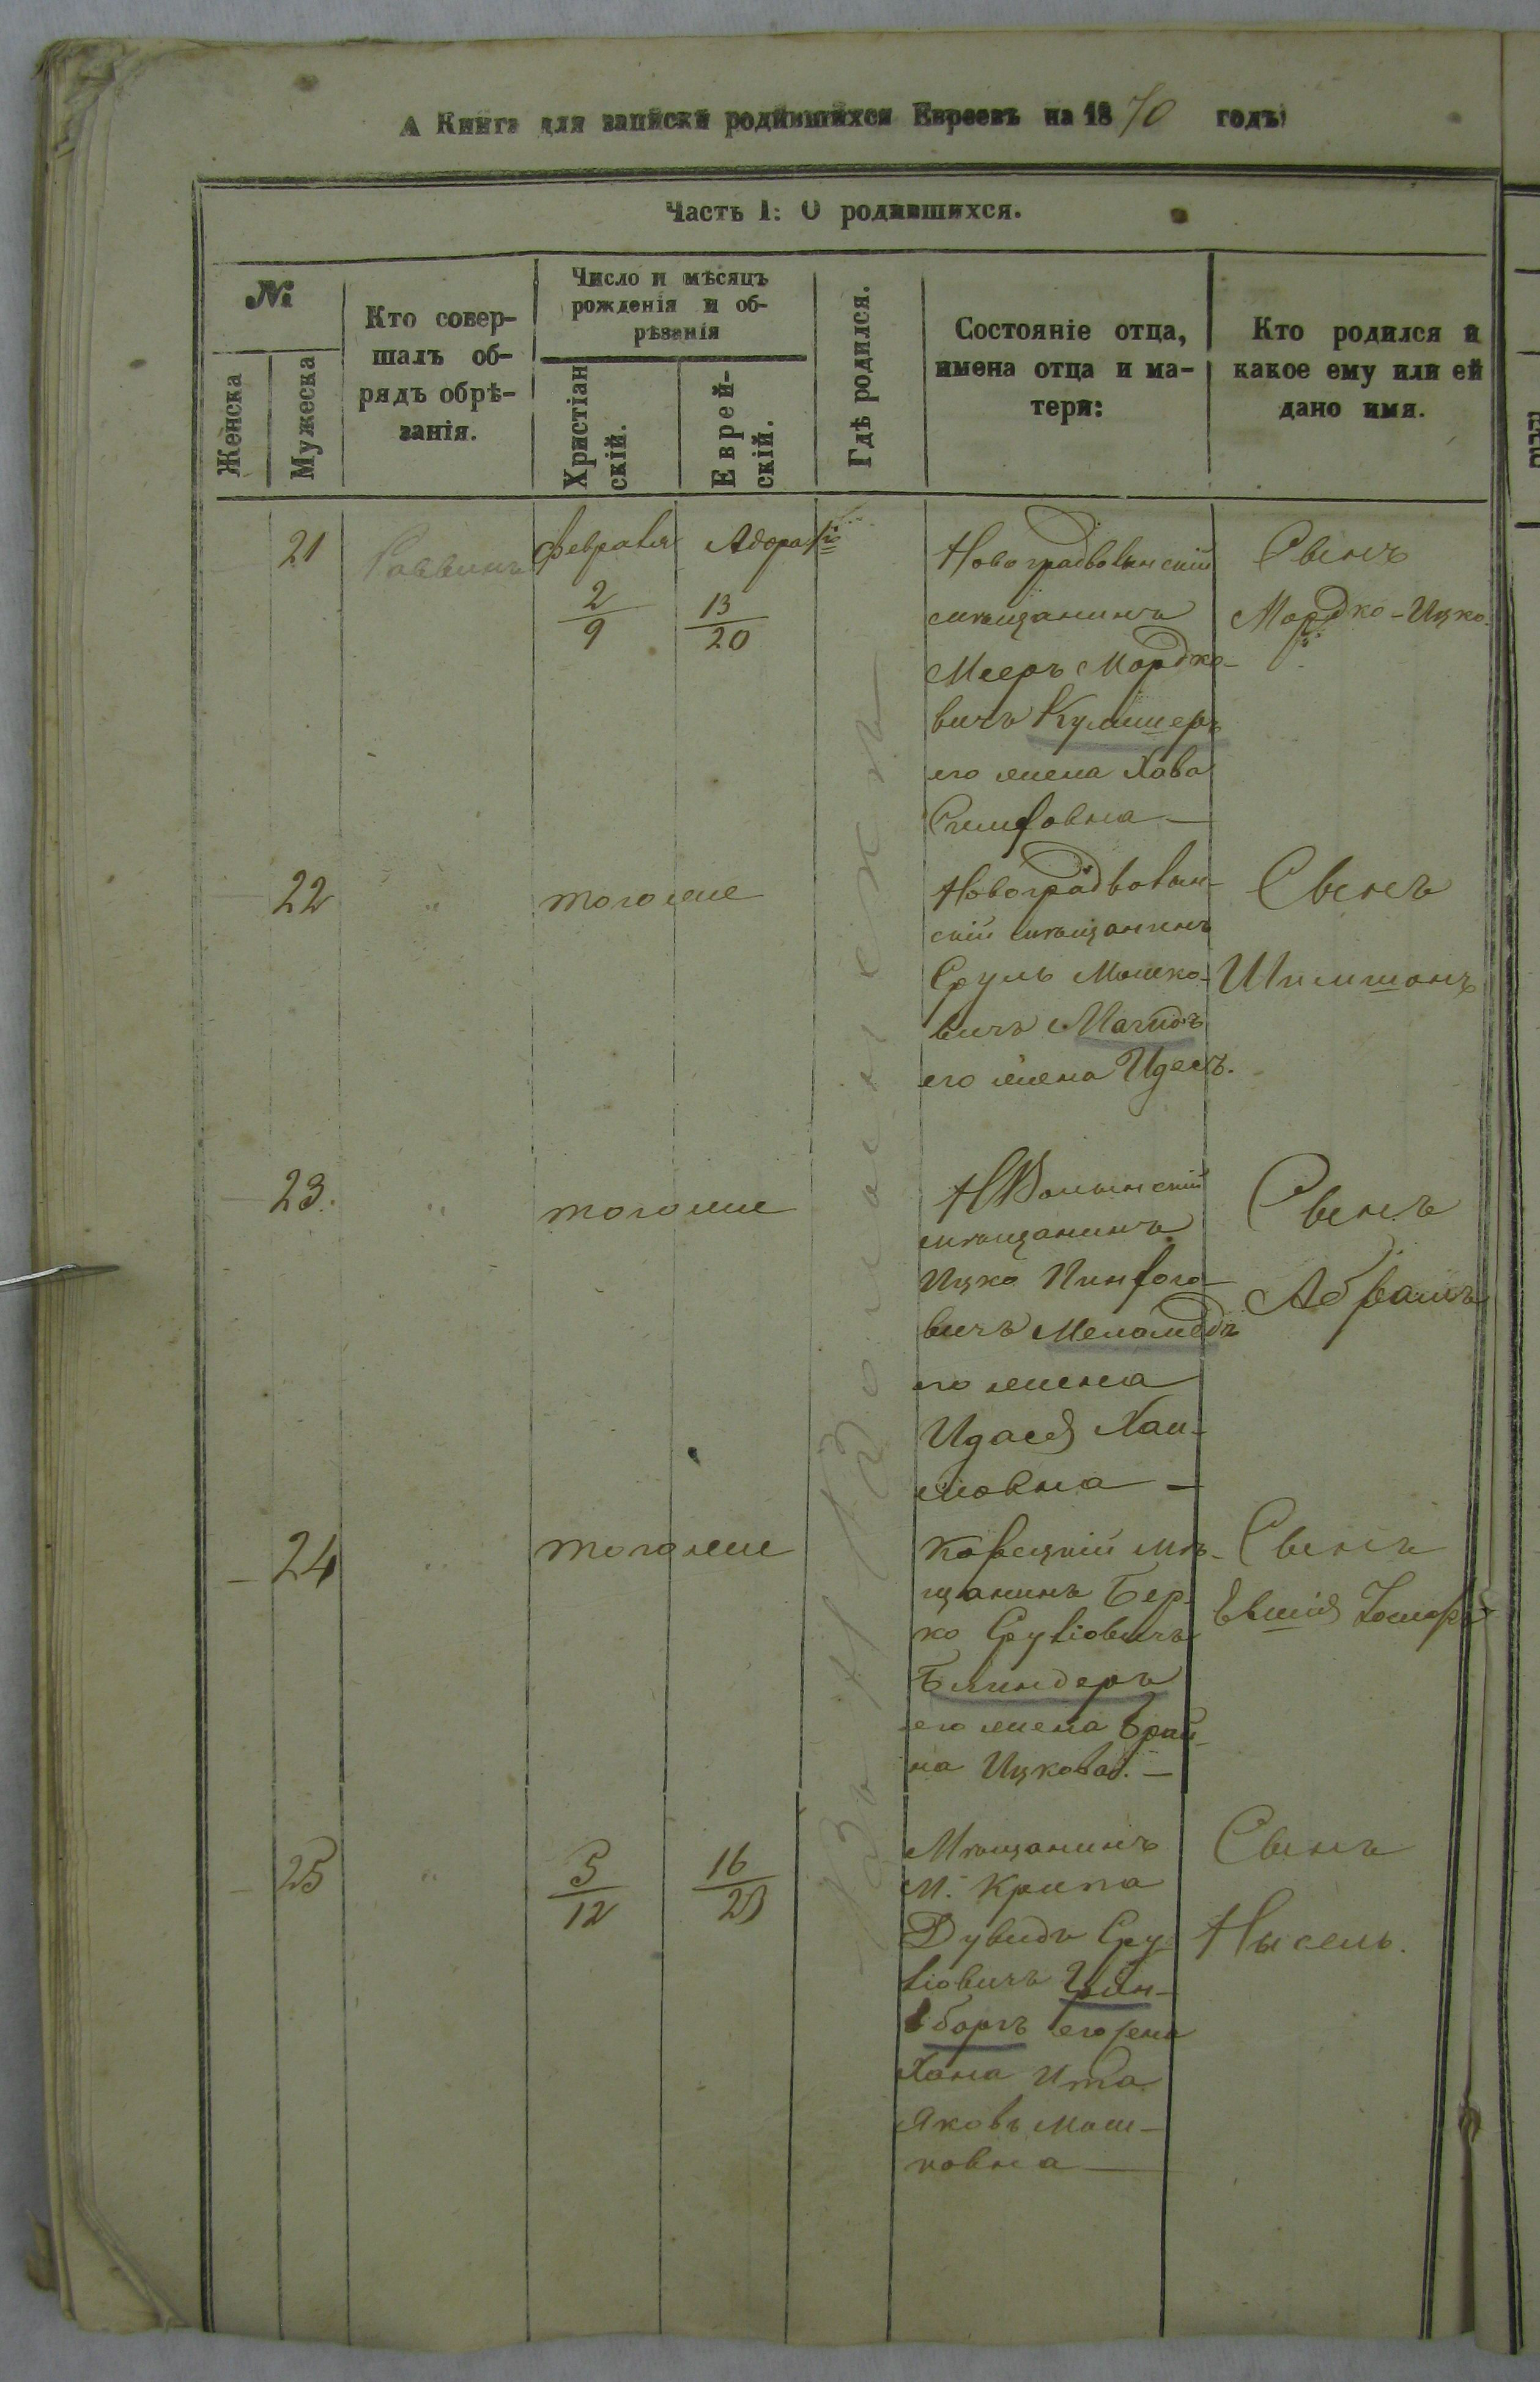 А Книга для записки родившихся Евреевъ на 1870 годъ
Часть I: О родившихся.
№
Женска
Мужеска
Кто совер-
шалъ об-
рядъ обрѣ-
занія.
Число и мѣсяцъ
рожденія и об-
рѣзанія
Христіан
скій.
Еврей-
скій.
Гдѣ родился.
Состояніе отца,
имена отца и ма-
тери:
Кто родился и
какое ему или ей
дано имя.
21
Раввинъ
Февраля
2
9
Адора
13
20
Новоградволынскій
мѣщанинъ
Мееръ Мордко-
вичъ Кулишеръ
его жена Хава
Сынъ
Мордко-Ицко.
22
"
тогоже
Новоградволын-
скій мѣщанинъ
Сруль Мошко-
вичъ Магидъ
его жена Идесъ.
Сынъ
Шимшонъ
23.
"
тогоже
НВолынскій
мѣщанинъ
Ицко
вичъ Меламедъ
его жена
Хаи-
мовна —
Сынъ
Абрамъ
24
"
тогоже
Корецкій мѣ-
щанинъ Бер-
ко Сруліовичъ
Блиндеръ
его жена Брай-
на Ицковая. —
Сынъ
25
"
5
12
16
23
Мѣщанинъ
М.
Дувидъ Сру
ліовичъ Грин-
боргъ его жена
Хана Ита
Яковъ Мош-
ковна —
Сынъ
Нысель.
Въ Н Волынскѣ